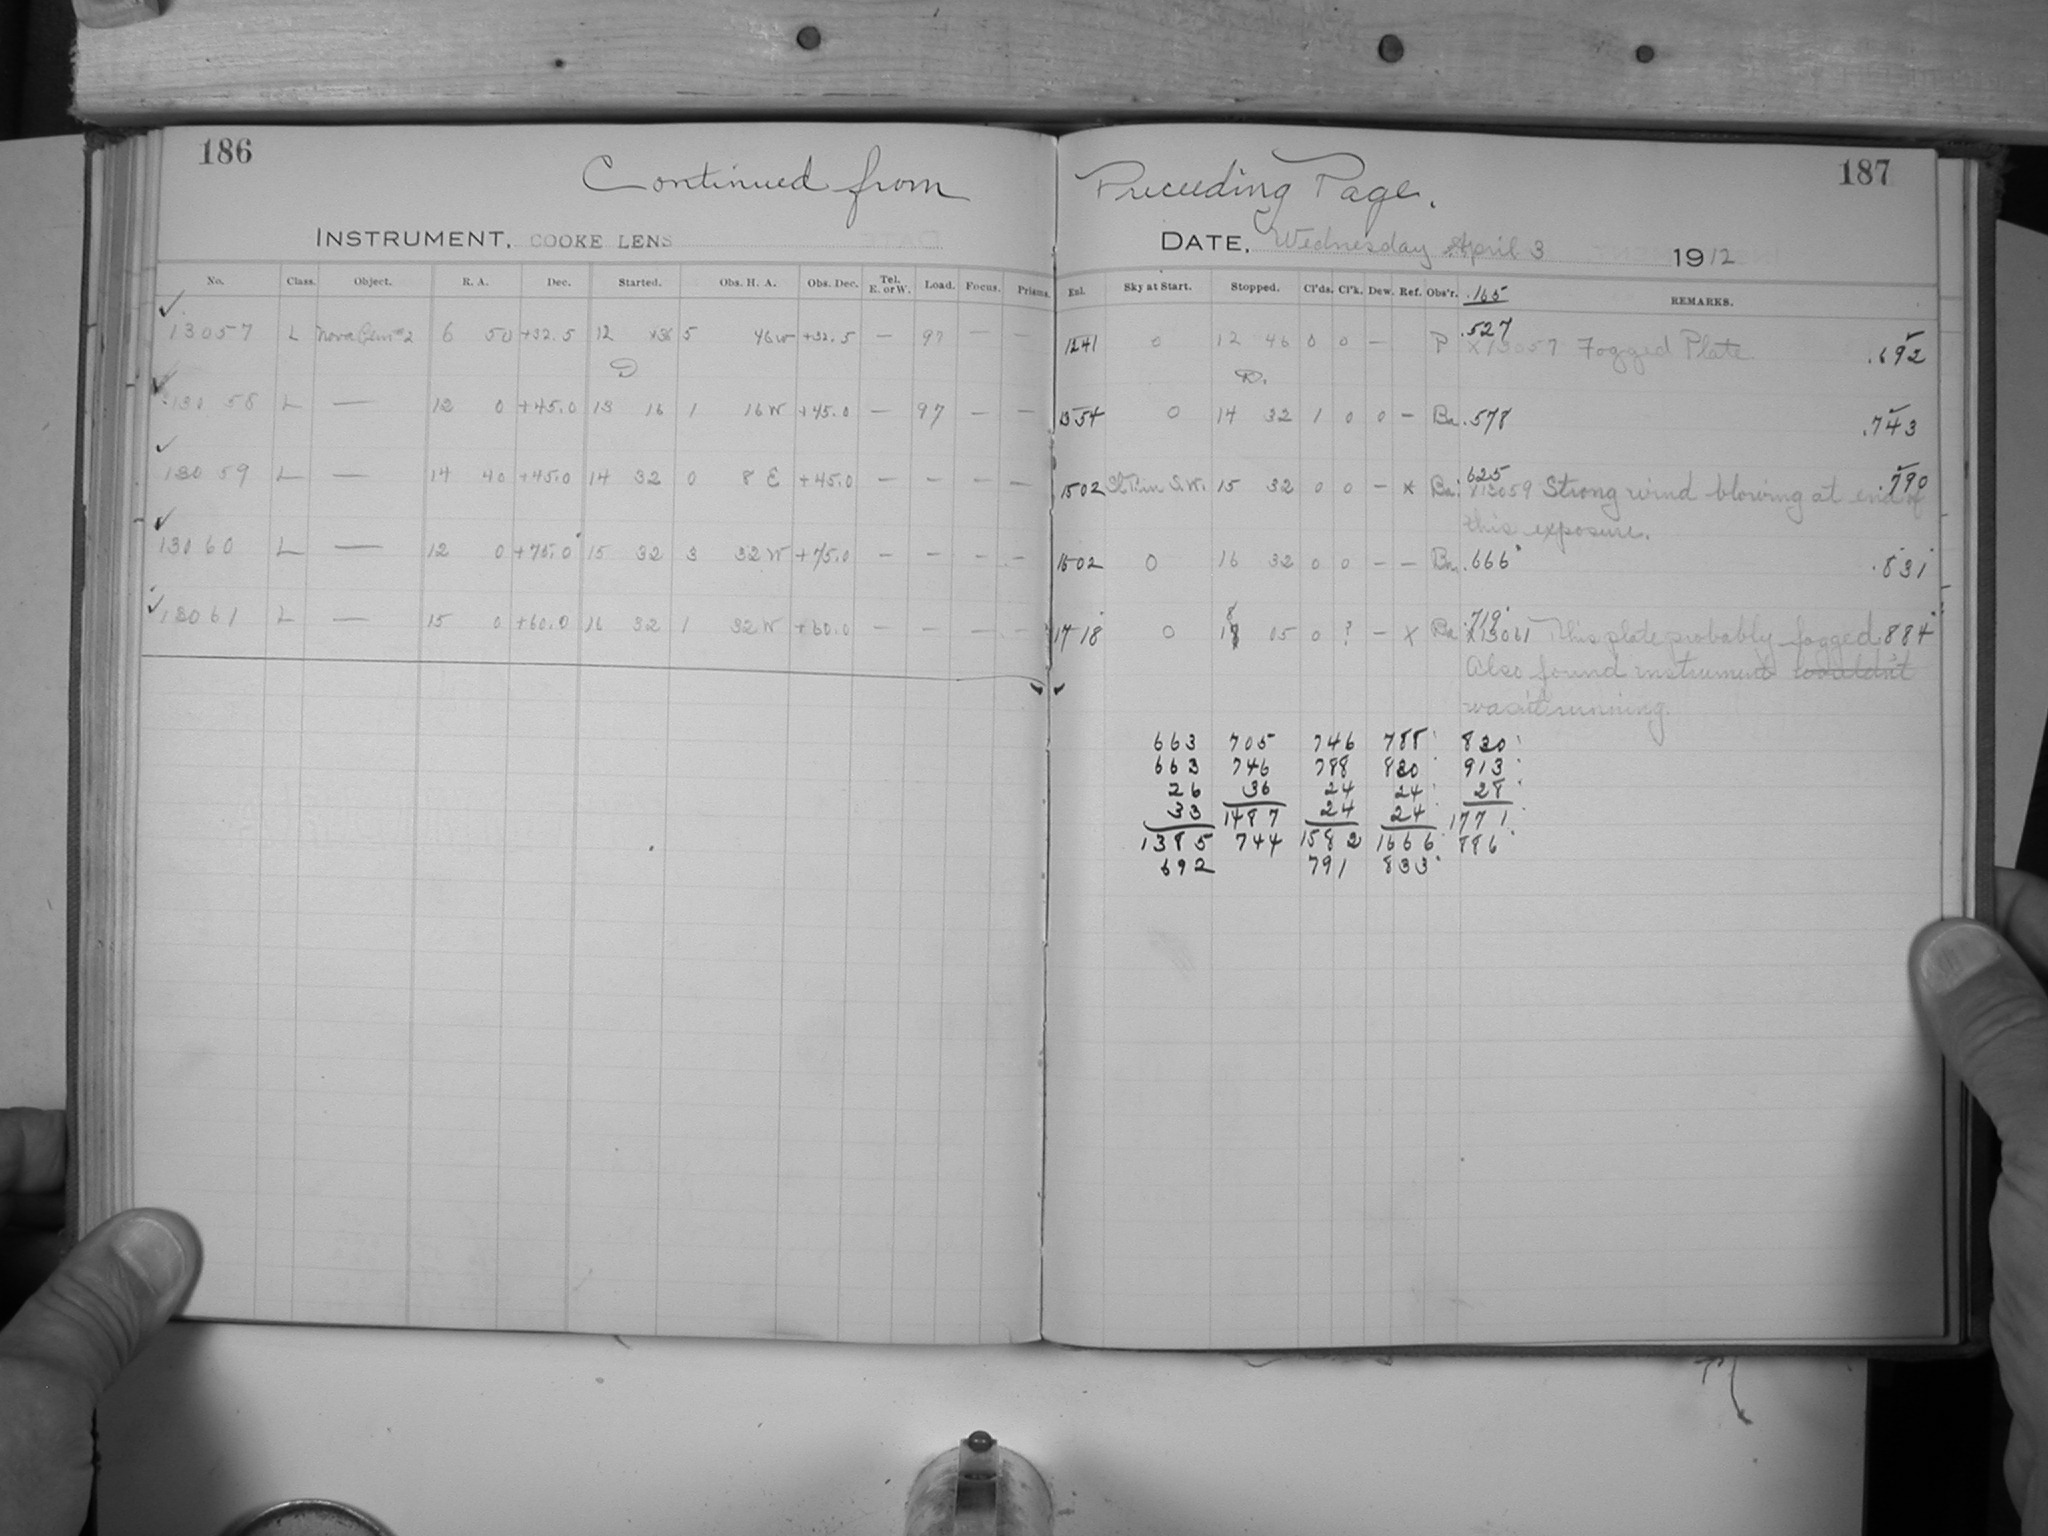 186
187
Continued from Preceeding Page.
INSTRUMENT, COOKE LENS
DATE, Wednesday April 3 1912
No. Class. Object. R. A. Dec. Started. Obs. H. A. Obs. Dec. Tel. E. or W. Load. Focus. Prisms. Exl. Sky at Start. Stopped. Cl'ds. Cl'k. Dew. Ref. Obs'r. .165 REMARKS.
13057 L Nova Gem #2 6 50 +32.5 12 36 5 46W +32.5 — 97 — — 1241 0 12 46 0 0 — P .527 X13057 Fogged Plate .692
D D.
13058 L — 12 0 +45.0 13 16 1 16W +45.0 — 97 — — 1354 0 14 32 1 0 0 — Ba. .578 .743
13059 L — 14 40 +45.0 14 32 0 8 E +45.0 — — — — 1502 St. in S.W. 15 32 0 0 — x Ba. .625 X13059 Strong wind blowing at end of .790
this exposure.
13060 L — 12 0 +75.0 15 32 3 32W +75.0 — — — — 1602 0 16 32 0 0 — — Ba. .666 .831
13061 L — 15 0 +60.0 16 32 1 32W +60.0 — — — — 1718 0 18 05 0 ? — X Ba. .719 X13061 This plate probably fogged .884
Also found instrument wouldn't
wasn't running.
663 705 746 788 830
663 746 788 830 913
26 36 24 24 28
33 1487 24 24 1771
1385 744 1582 1666 886
692 791 833